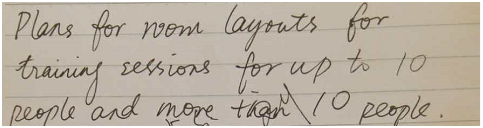 Plans for room layouts for
training sessions for up to 10
people and more than 10 people.